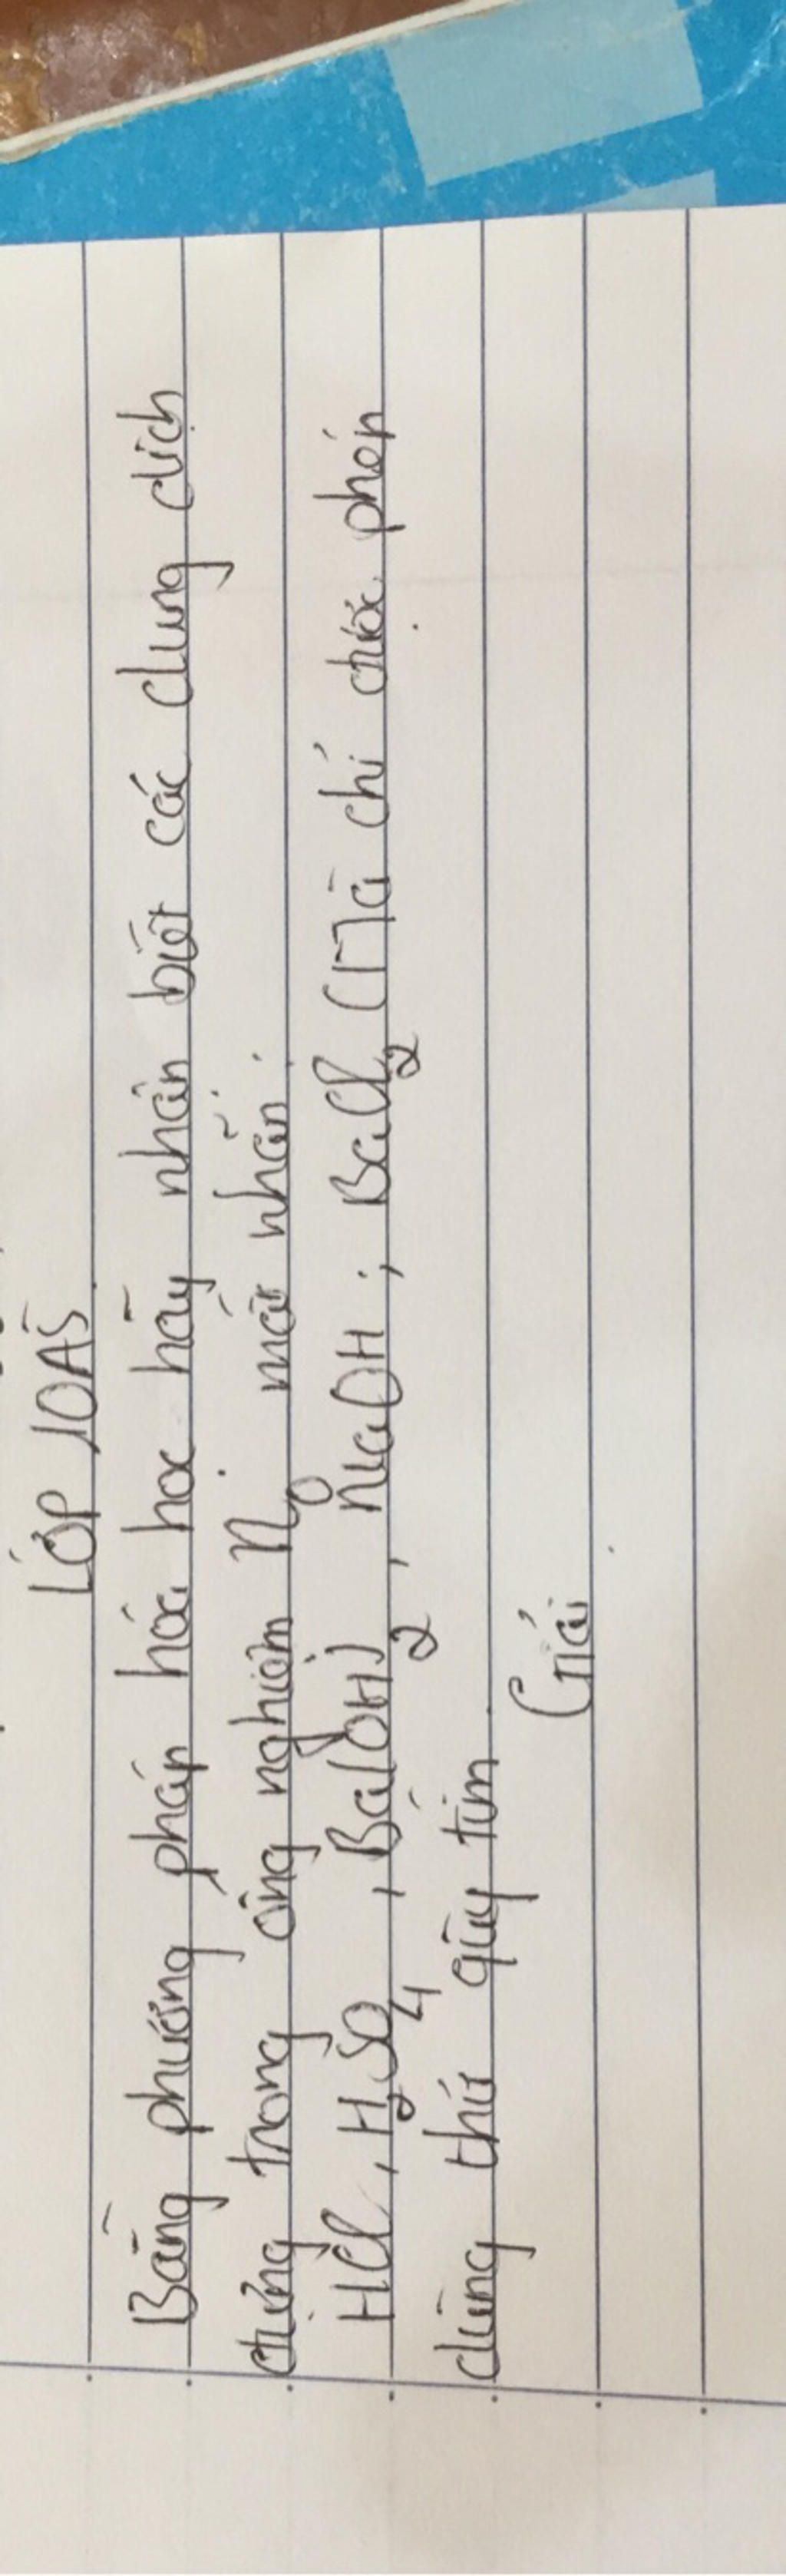 LỚP 10A5
Bằng phương pháp hóa học hãy nhận biết các dung dịch
đựng trong ống nghiệm mất nhãn:
HCl, H2SO4, Ba(OH)2, NaOH; BaCl2 (Mà chỉ được phép
dùng thử quỳ tím
Giải